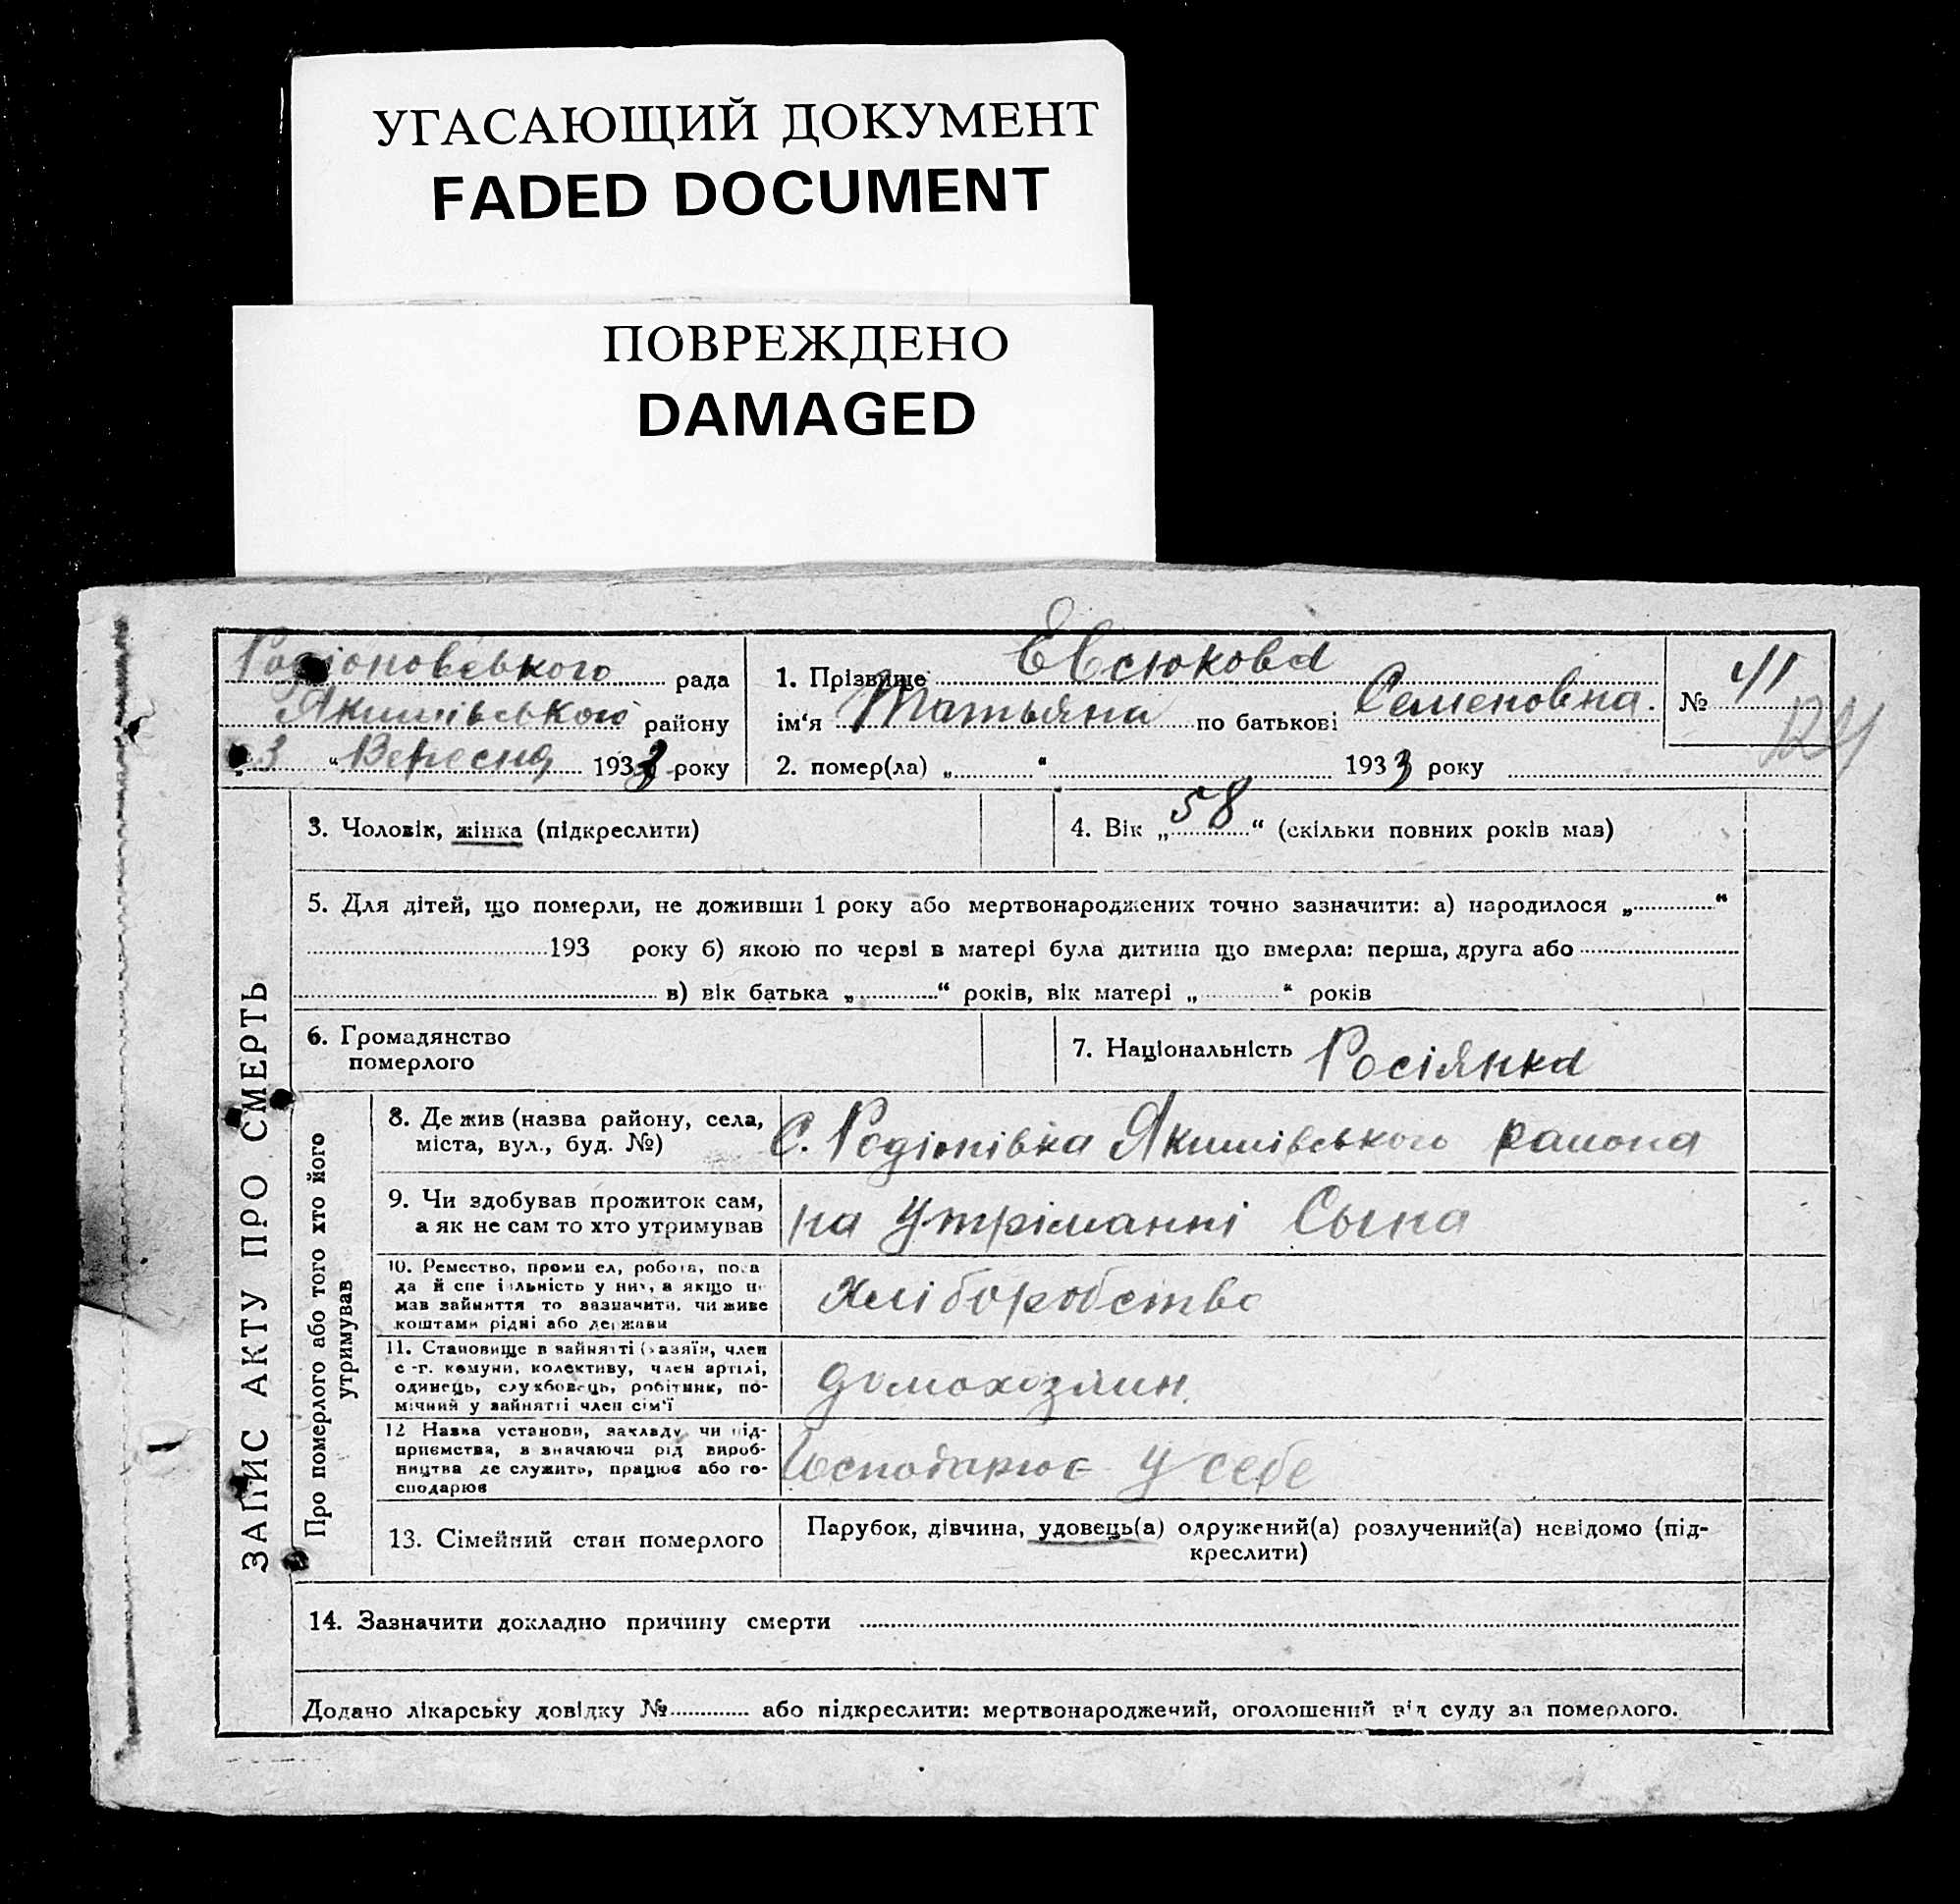 УГАСАЮЩИЙ ДОКУМЕНТ
FADED DOCUMENT
ПОВРЕЖДЕНО
DAMAGED
Родіоновського рада
Якимівського району
3 " Вересня 1933 року
1. Прізвище Евсюкова
ім'я Татьяна по батькові Семеновна.
2. помер(ла) „ " 1933 року
№ 41
124
ЗАПИС АКТУ ПРО СМЕРТЬ
3. Чоловік, жінка (підкреслити)
4. Вік „ 58 " (скільки повних років мав)
5. Для дітей, що померли, не доживши 1 року або мертвонароджених точно зазначити: а) народилося „ "
193 року б) якою по черзі в матері була дитина що вмерла: перша, друга або
в) вік батька „ " років, вік матері „ " років
6. Громадянство
померлого
7. Національність Росіянка
Про померлого або того хто його
утримував
8. Де жив (назва району, села,
міста, вул., буд. №)
С. Родіонівка Якимівського района
9. Чи здобував прожиток сам,
а як не сам то хто утримував
на утріманні Сына
10. Ремество, проми ел, робота, поса
да й спе іальність у них, а якщо не
мав зайняття то зазначити, чи живе
коштами рідні або держави
хліборобство
11. Становище в зайнятті (хазяїн, член
с-г. комуни, колективу, член артілі,
одинець, службовець, робітник, по-
мічний у зайнятті член сім'ї
домохозяин
12 Назва установи, закладу чи під-
приємства, зазначаючи рід вироб-
ництва де служить, працює або го-
сподарює
Господарює у себе
13. Сімейний стан померлого
Парубок, дівчина, удовець(а) одружений(а) розлучений(а) невідомо (під-
креслити)
14. Зазначити докладно причину смерти
Додано лікарську довідку № або підкреслити: мертвонароджений, оголошений від суду за померлого.